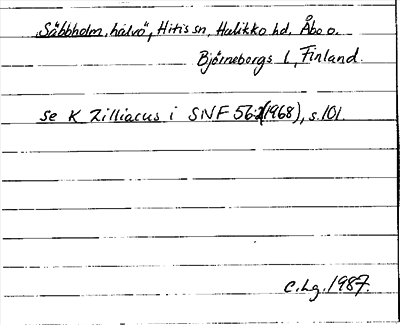 "Säbbholm, halvö", Hitis sn, Halikko hd, Åbo o.
Björneborgs l, Finland.
se K Zilliacus i SNF 56:2(1968), s.101.
C.Lg.1987.